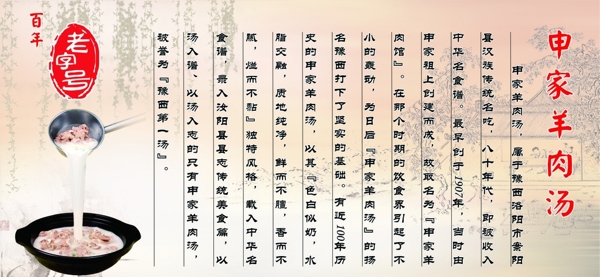 申家羊肉汤
申家羊肉汤，属于豫西洛阳市汝阳
县汉族传统名吃，八十年代，即被收入
中华名食谱。最早创于1907年，当时由
申家祖上创建而成，故取名为『申家羊
肉馆』。在那个时期的饮食界引起了不
小的轰动，为日后『申家羊肉汤』的扬
名豫西打下了坚实的基础。有近100年历
史的申家羊肉汤，以其『色白似奶，水
脂交融，质地纯净，鲜而不膻，香而不
腻，烂而不黏』独特风格，载入中华名
食谱，录入汝阳县县志传统美食篇，以
汤入谱、以汤入志的只有申家羊肉汤，
被誉为『豫西第一汤』。
百年
老字号